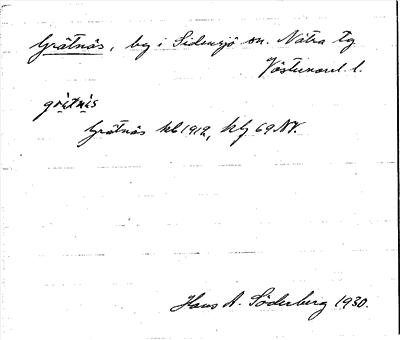 Gråtnäs, by i Sidensjö sn. Nätra tg
Västernorrl. l.
Gråtnäs kb 1912, kbf 69 NV.
Hans A. Söderberg 1930.